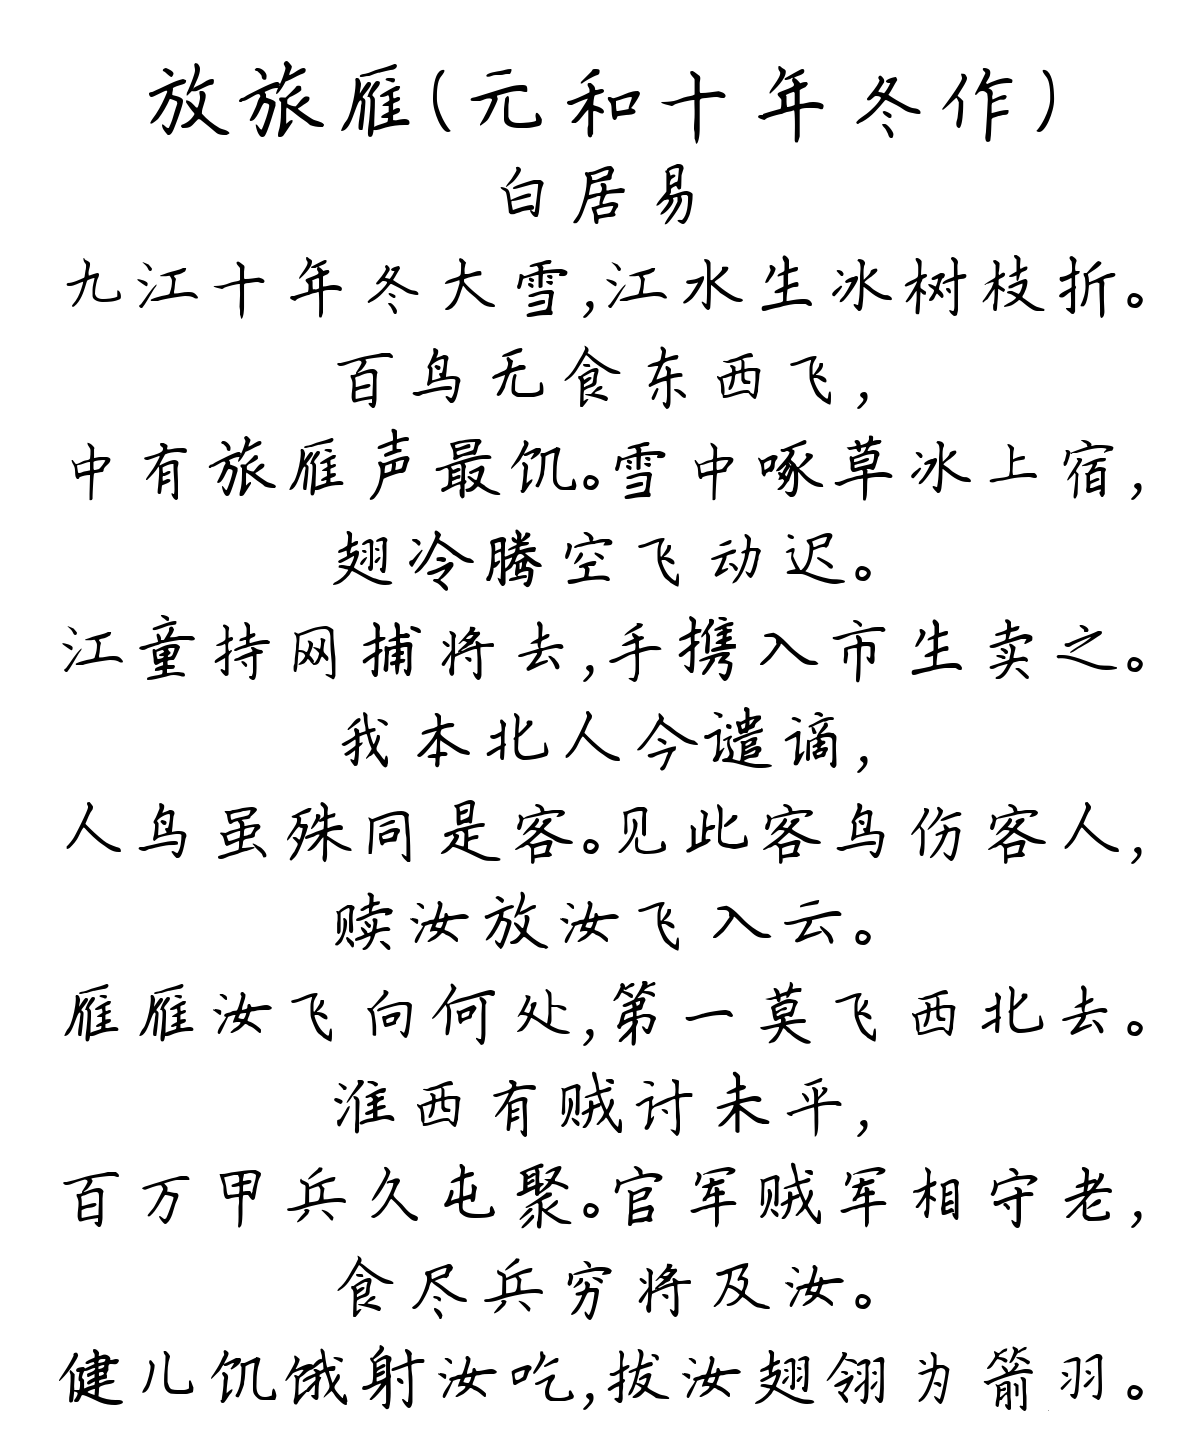 放旅雁(元和十年冬作)
白居易
九江十年冬大雪,江水生冰树枝折。
百鸟无食东西飞,
中有旅雁声最饥。雪中啄草冰上宿,
翅冷腾空飞动迟。
江童持网捕将去,手携入市生卖之。
我本北人今谴谪,
人鸟虽殊同是客。见此客鸟伤客人,
赎汝放汝飞入云。
雁雁汝飞向何处,第一莫飞西北去。
淮西有贼讨未平,
百万甲兵久屯聚。官军贼军相守老,
食尽兵穷将及汝。
健儿饥饿射汝吃,拔汝翅翎为箭羽。